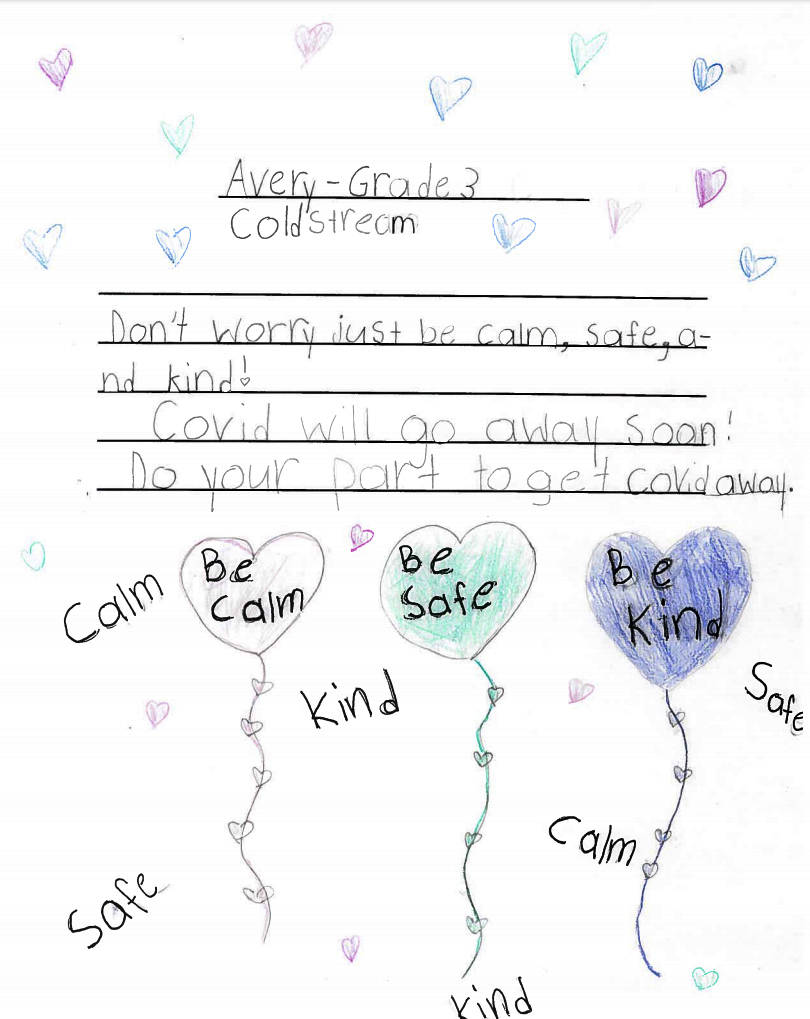 Avery-Grade 3
Coldstream
Don't worry just be calm, safe, a-
nd kind!
Covid will go away soon!
Do your part to get covid away.
Be
Calm
Be
Safe
Be
Kind
Calm
Kind
Safe
Calm
Safe
Kind